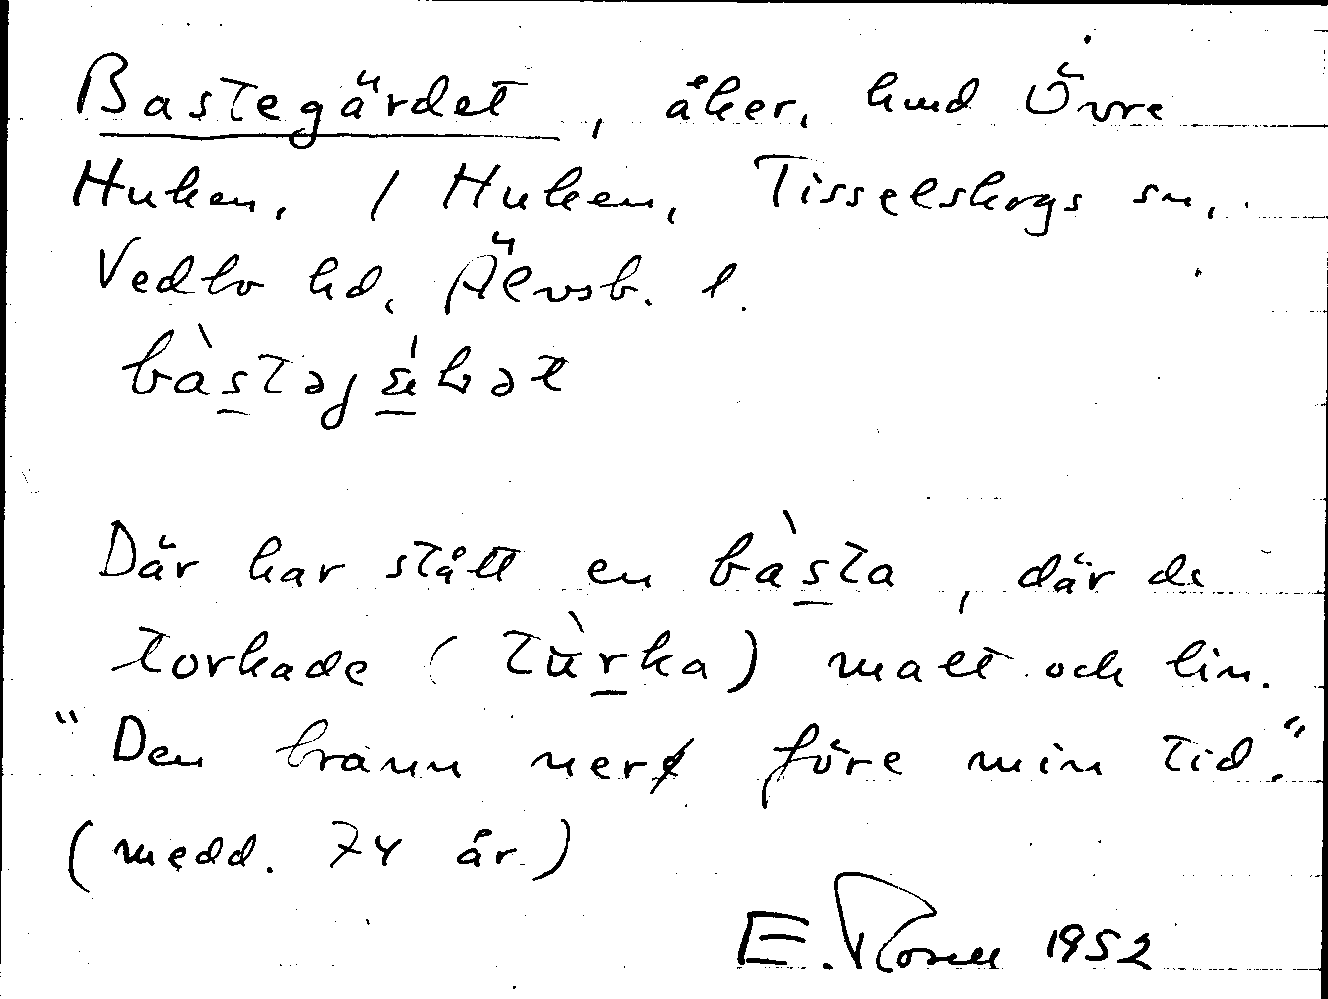 Bastegärdet, åker, hmd Övre
Huken, / Huken, Tisselskogs sn,
Vedbo hd, Älvsb. l.
Där har stått en bàsta, där de
torkade (tùrka) malt och lin.
"Den brann ner före min tid."
(medd. 74 år)
E. Rosell 1952